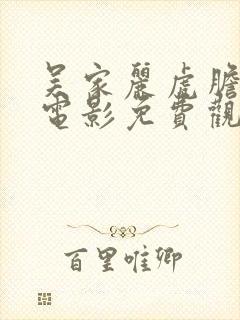 吴家麗虎膽
電影免費觀
百里唯卿